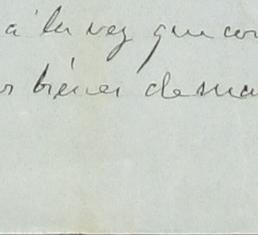 a la vez que con
bienes de ma